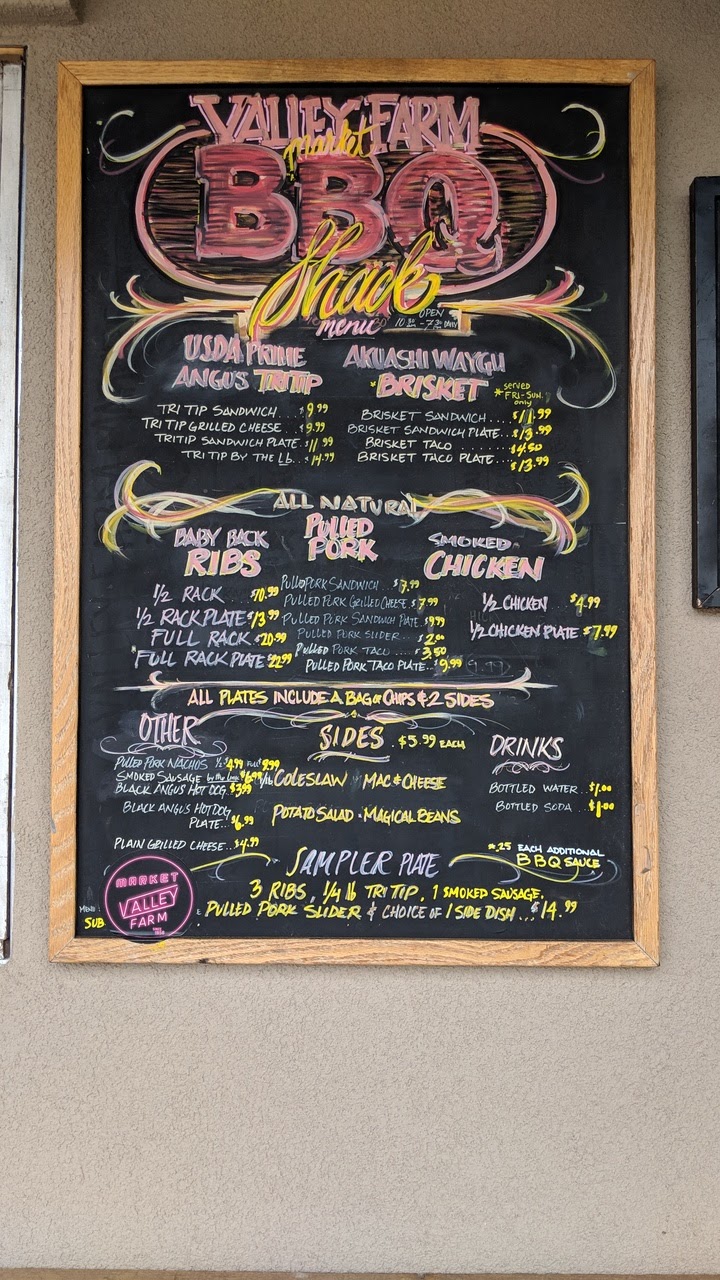 VALLEY FARM
market
BBQ
Shack
menu
OPEN
10:30 AM - 7:30 DAILY
USDA PRIME
ANGUS TRITIP
TRI TIP SANDWICH....$9.99
TRI TIP GRILLED CHEESE...$9.99
TRITIP SANDWICH PLATE..$11.99
TRI TIP BY THE Lb...$14.99
AKUASHI WAYGU
*BRISKET
*served
FRI-SUN.
only
BRISKET SANDWICH.....$11.99
BRISKET SANDWICH PLATE...$13.99
BRISKET TACO........$4.50
BRISKET TACO PLATE...$13.99
ALL NATURAL
BABY BACK
RIBS
1/2 RACK....$10.99
1/2 RACK PLATE $13.99
FULL RACK $20.99
FULL RACK PLATE $22.99
PULLED
PORK
PULLED PORK SANDWICH...$7.99
PULLED PORK GRILLED CHEESE $7.99
PULLED PORK SANDWICH PLATE.$9.99
PULLED PORK SLIDER....$2.00
PULLED PORK TACO....$3.50
PULLED PORK TACO PLATE...$9.99
SMOKED
CHICKEN
1/2 CHICKEN....$4.99
1/2 CHICKEN PLATE $7.99
ALL PLATES INCLUDE A BAG OF CHIPS & 2 SIDES
OTHER
PULLED PORK NACHOS 1/2 $4.99 FULL $9.99
SMOKED SAUSAGE by the Link $6.99/lb
BLACK ANGUS HOT DOG.$3.99
BLACK ANGUS HOT DOG
PLATE...$6.99
PLAIN GRILLED CHEESE..$4.99
SIDES . $5.99 EACH
COLESLAW MAC & CHEESE
POTATO SALAD • MAGICAL BEANS
DRINKS
BOTTLED WATER..$1.00
BOTTLED SODA..$1.00
*.25 EACH ADDITIONAL
BBQ SAUCE
SAMPLER PLATE
3 RIBS, 1/4 lb TRI TIP, 1 SMOKED SAUSAGE,
PULLED PORK SLIDER & CHOICE OF 1 SIDE DISH...$14.99
MENU
SUB
MARKET
VALLEY
FARM